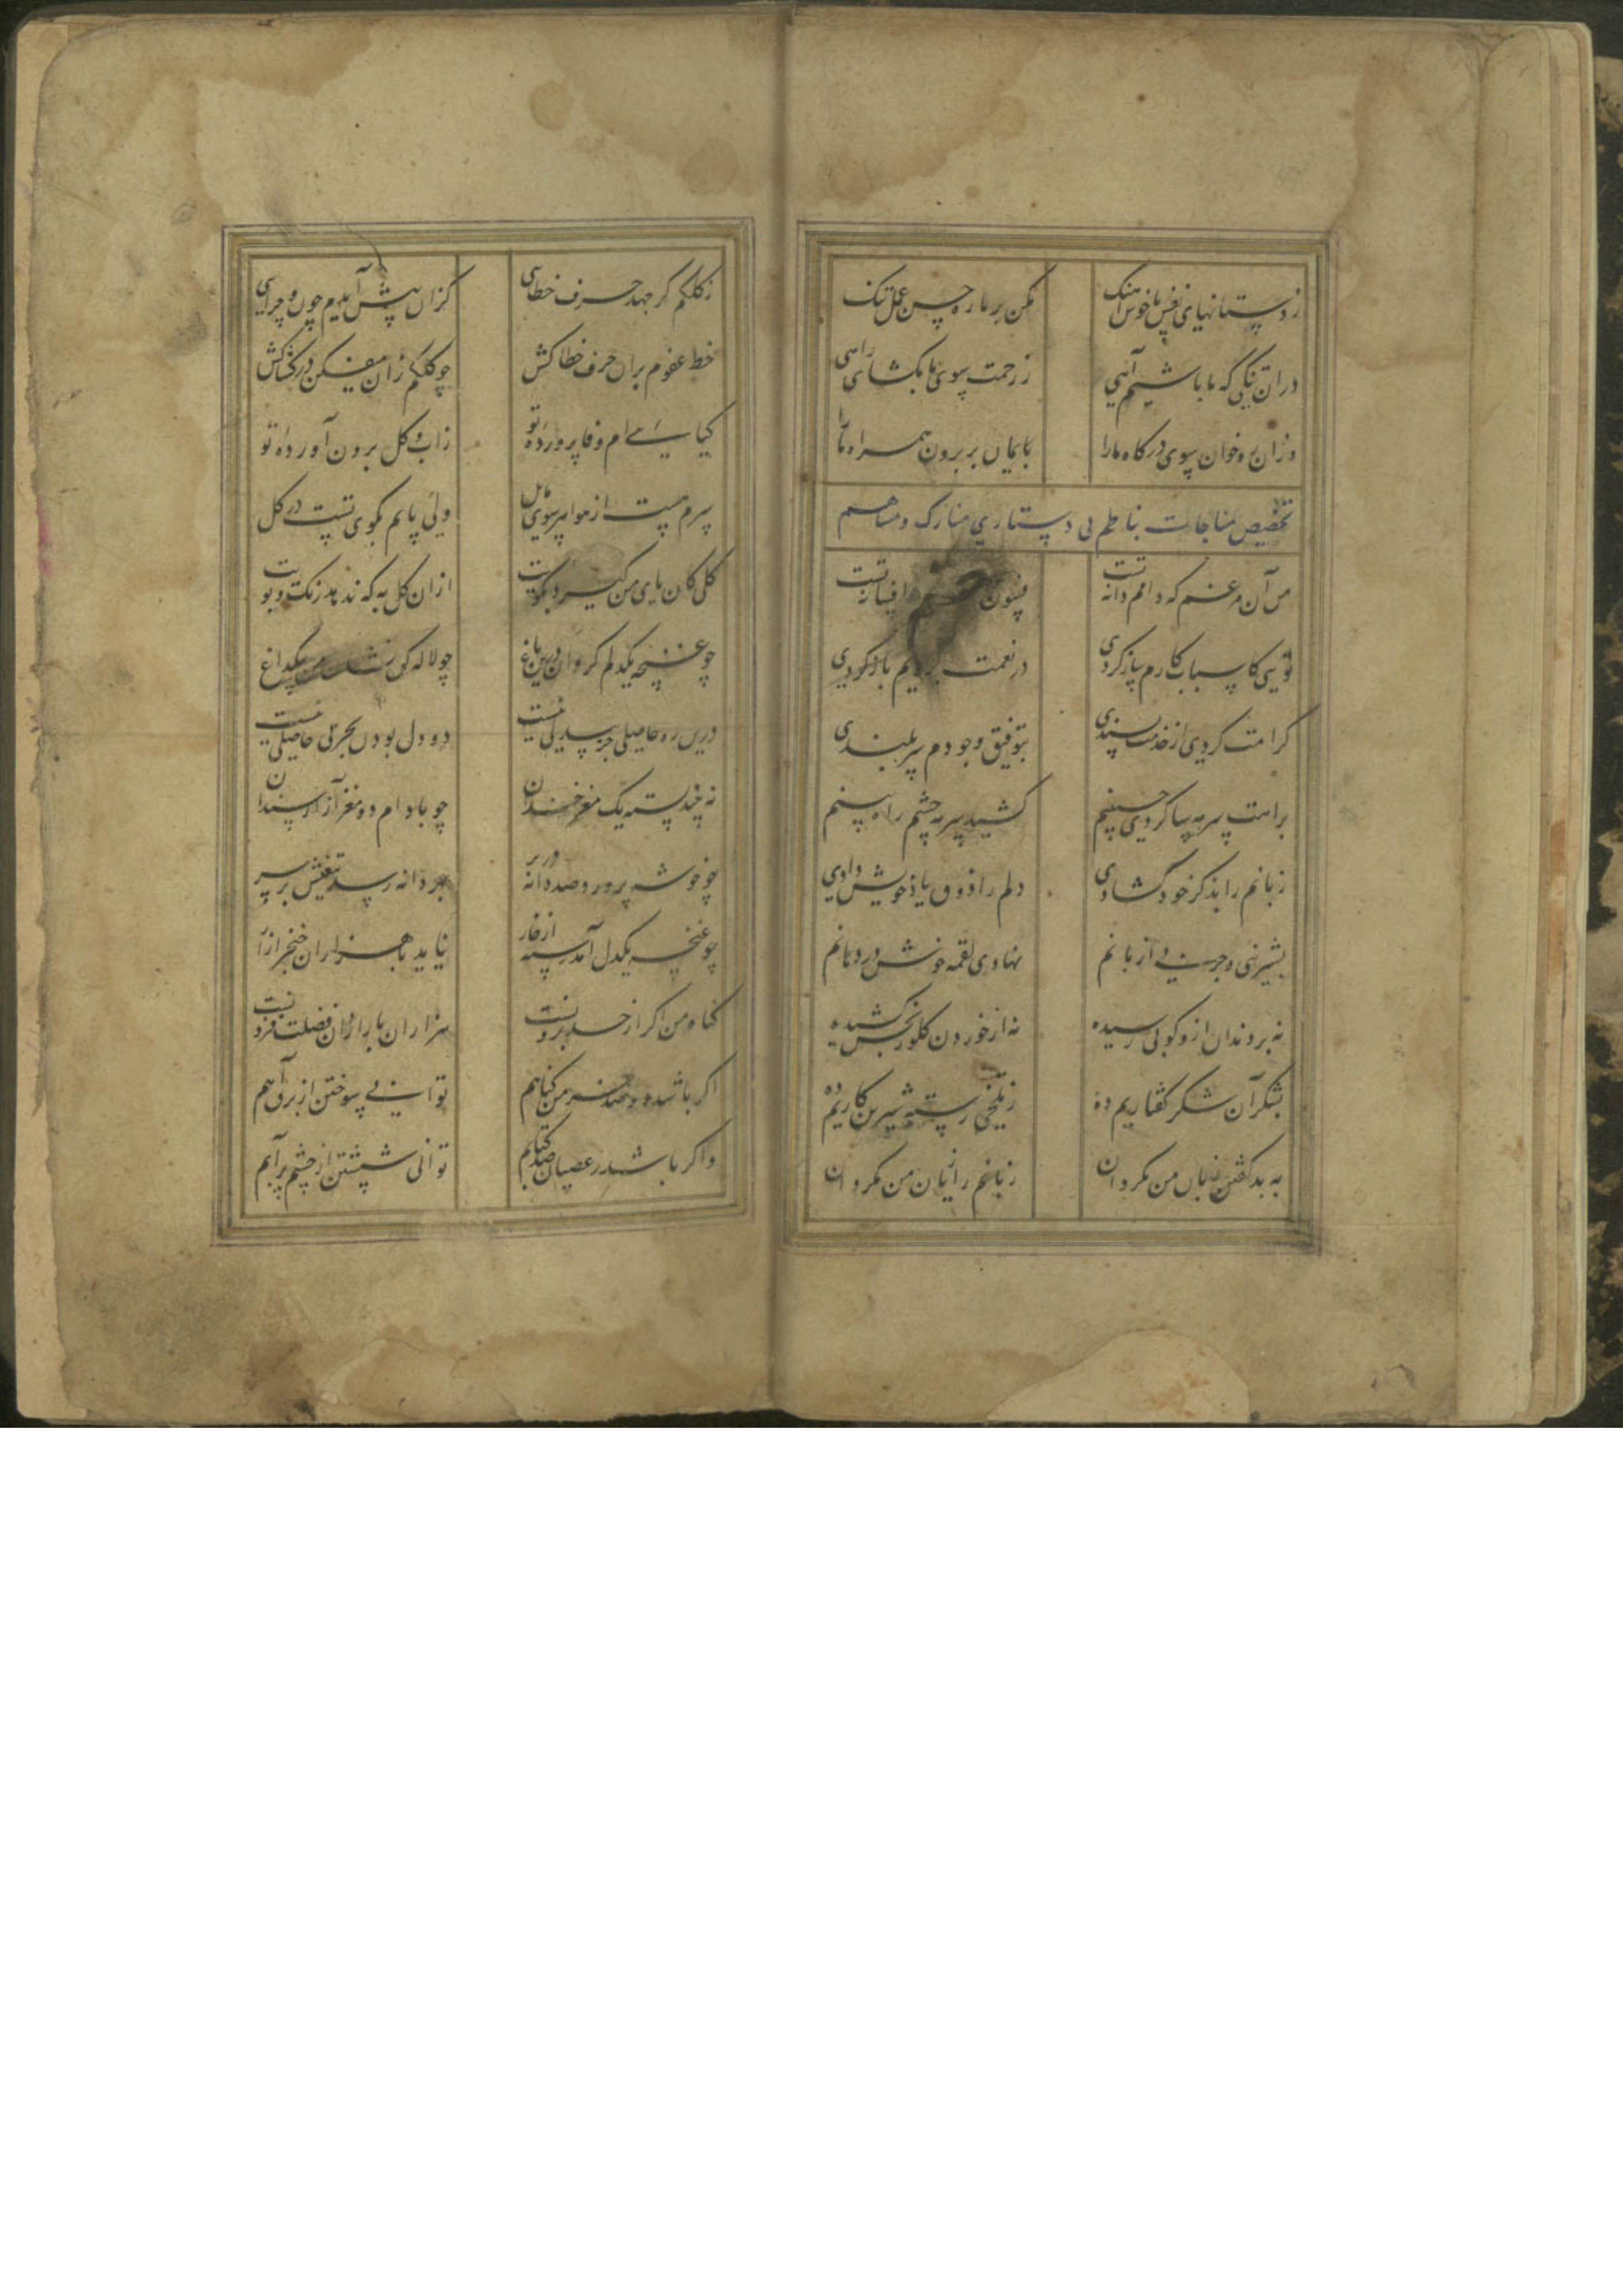 ز دستانهای نفس ناخوش آهنگ مکن بر ما ره حسن عمل تنگ
دران تنگی که ما باشیم آهی ز رحمت سوی ما بکشای راهی
وزان ره خوان سوی درگاه ما را بایمان بر برون همراه ما را
تخصیص مناجات بناظم بی دستاری
من آن مرغم که دامم دانه تست فسون افسانه تست
تویی کاسباب کارم ساز کردی در نعمت برویم باز کردی
کرامت کردی از خدمت پسندی بتوفیق وجودم سربلندی
براهت سر بپا کردی جبینم کشید سرمه چشم راه بینم
زبانم را بذکر خود گشادی دلم را ذوق یاد خویش دادی
بشیرینی و چربی از زبانم نهادی لقمه خوش در دهانم
نه بر دندان ازو کوبی رسیده نه از خوردن گلو رنجش کشیده
بشکر آن شکر گفتاریم ده ز تلخی رسته شیرین کاریم ده
به بد گفتن زبان من مگردان زبانم را زیان من مگردان
ز کلکم گر جهد حرف خطایی کزان پیش آیدم چون و چرایی
خط عفوم بران حرف خطا کش چو کلکم زان میفکن در کشاکش
گیاهی ام وفا پرورده تو ز آب و گل برون آورده تو
سرم هست از هوا هر سوی مایل ولی پایم بکوی تست در گل
گلی کان پای من گیرد بکویت ازان گل به که ندهد رنگ و بویت
چو غنچه یکدلم گردان درین باغ چو لاله کن نشان من بیکداغ
درین ره حاصلی جز یکدلی نیست دو دل بودن بجز بی حاصلی نیست
نه بیند پسته یک مغز خندان چو بادام دو مغز آزار سندان
چو خوشه پرورد صد دانه در بر بهر دانه رسد تیغیش بر سر
چو غنچه یکدل آمد رسته از خار نیاید با هزاران خنجر آزار
گناه من اگر از حد برونست هزاران بار ازان فضلت فزونست
اگر باشد دو صد خرمن گناهم توانی سوختن از برق آهم
و گر باشد ز عصیان صد کتابم توانی شستن از چشم پر آبم